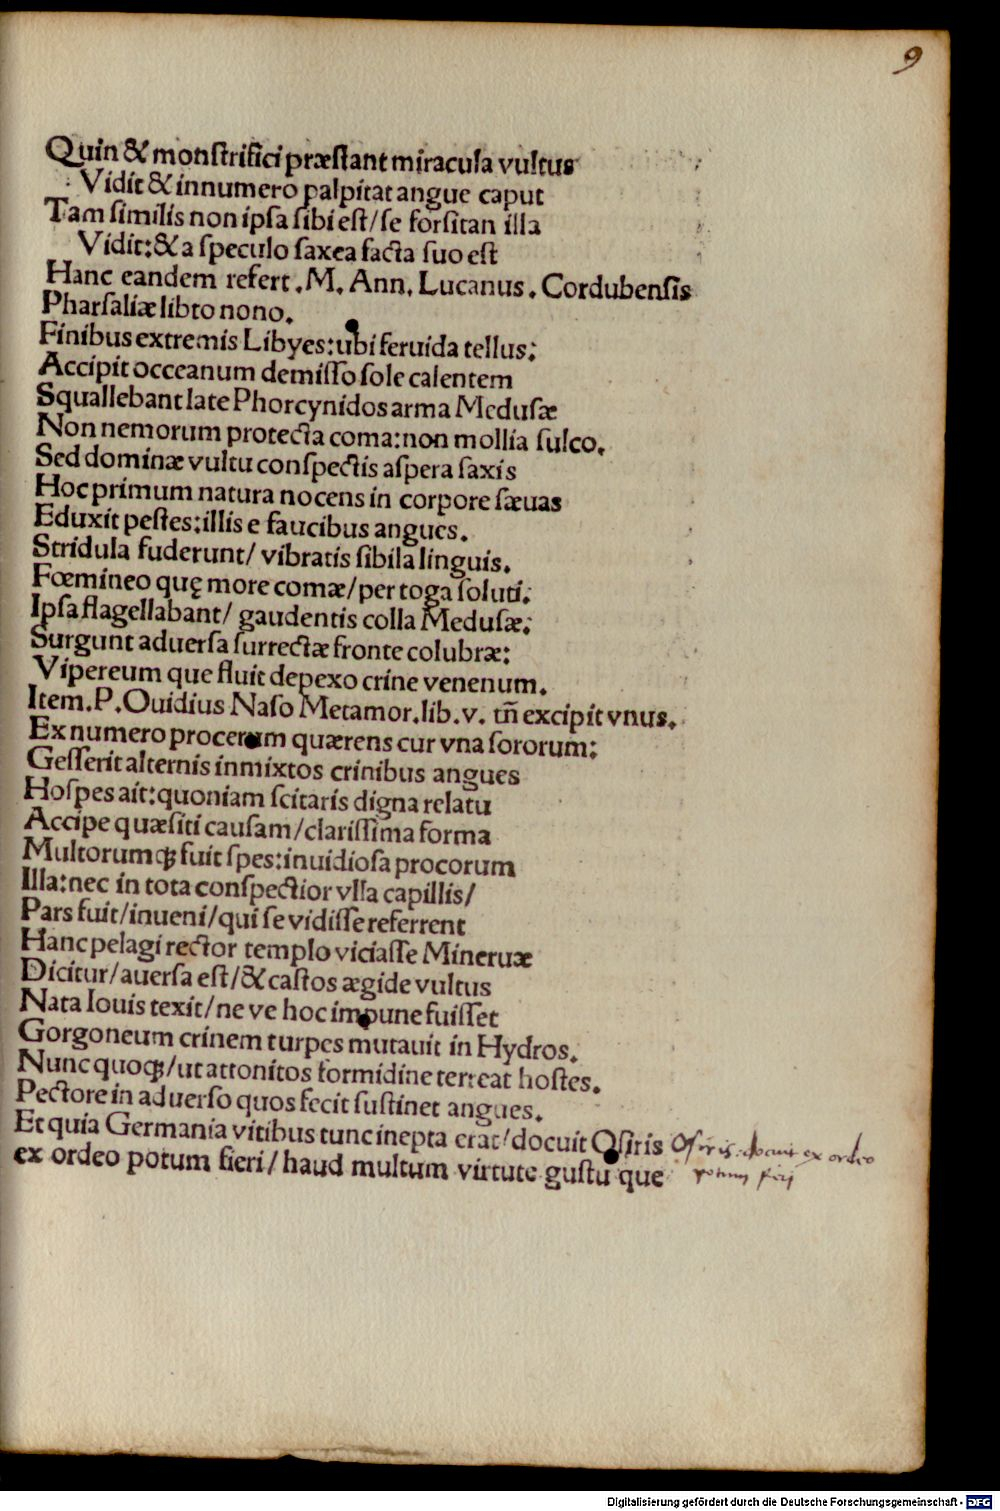 9
Quin & monſtrifici præſtant miracula vultus
Vidit & innumero palpitat angue caput
Tam ſimilis non ipſa ſibi eſt/ ſe forſitan illa
Vidit: & a ſpeculo ſaxea facta ſuo eſt
Hanc eandem refert. M. Ann. Lucanus. Cordubenſis
Pharſaliæ libro nono.
Finibus extremis Libyes: ubi feruida tellus:
Accipit occeanum demiſſo ſole calentem
Squallebant late Phorcynidos arma Meduſæ
Non nemorum protecta coma: non mollia ſulco.
Sed dominæ vultu conſpectis aſpera ſaxis
Hoc primum natura nocens in corpore ſæuas
Eduxit peſtes: illis e faucibus angues.
Stridula fuderunt/ vibratis ſibila linguis.
Fœmineo quę more comæ/ per toga ſoluti:
Ipſa flagellabant/ gaudentis colla Meduſæ:
Surgunt aduerſa ſurrectæ fronte colubræ:
Vipereum que fluit depexo crine venenum.
Item. P. Ouidius Naſo Metamor. lib. v. tñ excipit vnus.
Ex numero procerum quærens cur vna ſororum:
Geſſerit alternis inmixtos crinibus angues
Hoſpes ait: quoniam ſcitaris digna relatu
Accipe quæſiti cauſam/ clariſſima forma
Multorumqꝫ fuit ſpes: inuidioſa procorum
Illa: nec in tota conſpectior vlla capillis/
Pars fuit/ inueni/ qui ſe vidiſſe referrent
Hanc pelagi rector templo viciaſſe Mineruæ
Dicitur/ auerſa eſt/ & caſtos ægide vultus
Nata Iouis texit/ ne ve hoc impune fuiſſet
Gorgoneum crinem turpes mutauit in Hydros.
Nunc quoqꝫ/ ut attonitos formidine terreat hoſtes.
Pectore in aduerſo quos fecit ſuſtinet angues.
Et quia Germania vitibus tunc inepta erat/ docuit Oſiris Oſiris docuit ex ordeo
ex ordeo potum fieri/ haud multum virtute guſtu que potum fieri
Digitalisierung gefördert durch die Deutsche Forschungsgemeinschaft - DFG